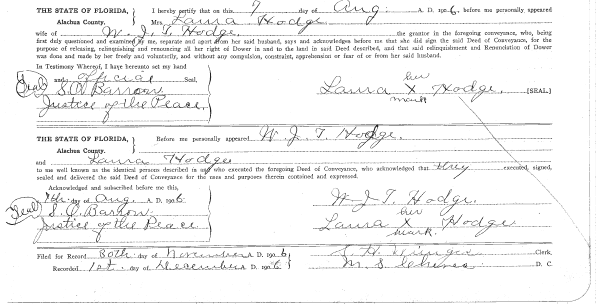 THE STATE OF FLORIDA, } I hereby certify that on this 7 day of Aug. A. D. 1906, before me personally appeared
Alachua County. Mrs. Laura Hodge
wife of W. J. T. Hodge the grantor in the foregoing conveyance, who, being
first duly questioned and examined by me, separate and apart from her said husband, says and acknowledges before me that she did sign the said Deed of Conveyance, for the
purpose of releasing, relinquishing and renouncing all her right of Dower in and to the land in said Deed described, and that said relinquishment and Renunciation of Dower
was done and made by her freely and voluntarily, and without any compulsion, constraint, apprehension or fear of or from her said husband.
In Testimony Whereof, I have hereunto set my hand
and official Seal,
(Seal) S. O. Barrow
Justice of the Peace.
her
Laura X Hodge. [SEAL]
mark
THE STATE OF FLORIDA, } Before me personally appeared W. J. T. Hodge.
Alachua County.
and Laura Hodge
to me well known as the identical persons described in and who executed the foregoing Deed of Conveyance, who acknowledged that they executed, signed,
sealed and delivered the said Deed of Conveyance for the uses and purposes therein contained and expressed.
Acknowledged and subscribed before me this,
7th day of Aug. A. D. 1906.
(Seal) S. O. Barrow
Justice of the Peace
W. J. T. Hodge.
her
Laura X Hodge
mark.
Filed for Record 30th day of November A. D. 1906
Clerk,
Recorded 1st. day of December A. D. 1906
M. S.
D. C.